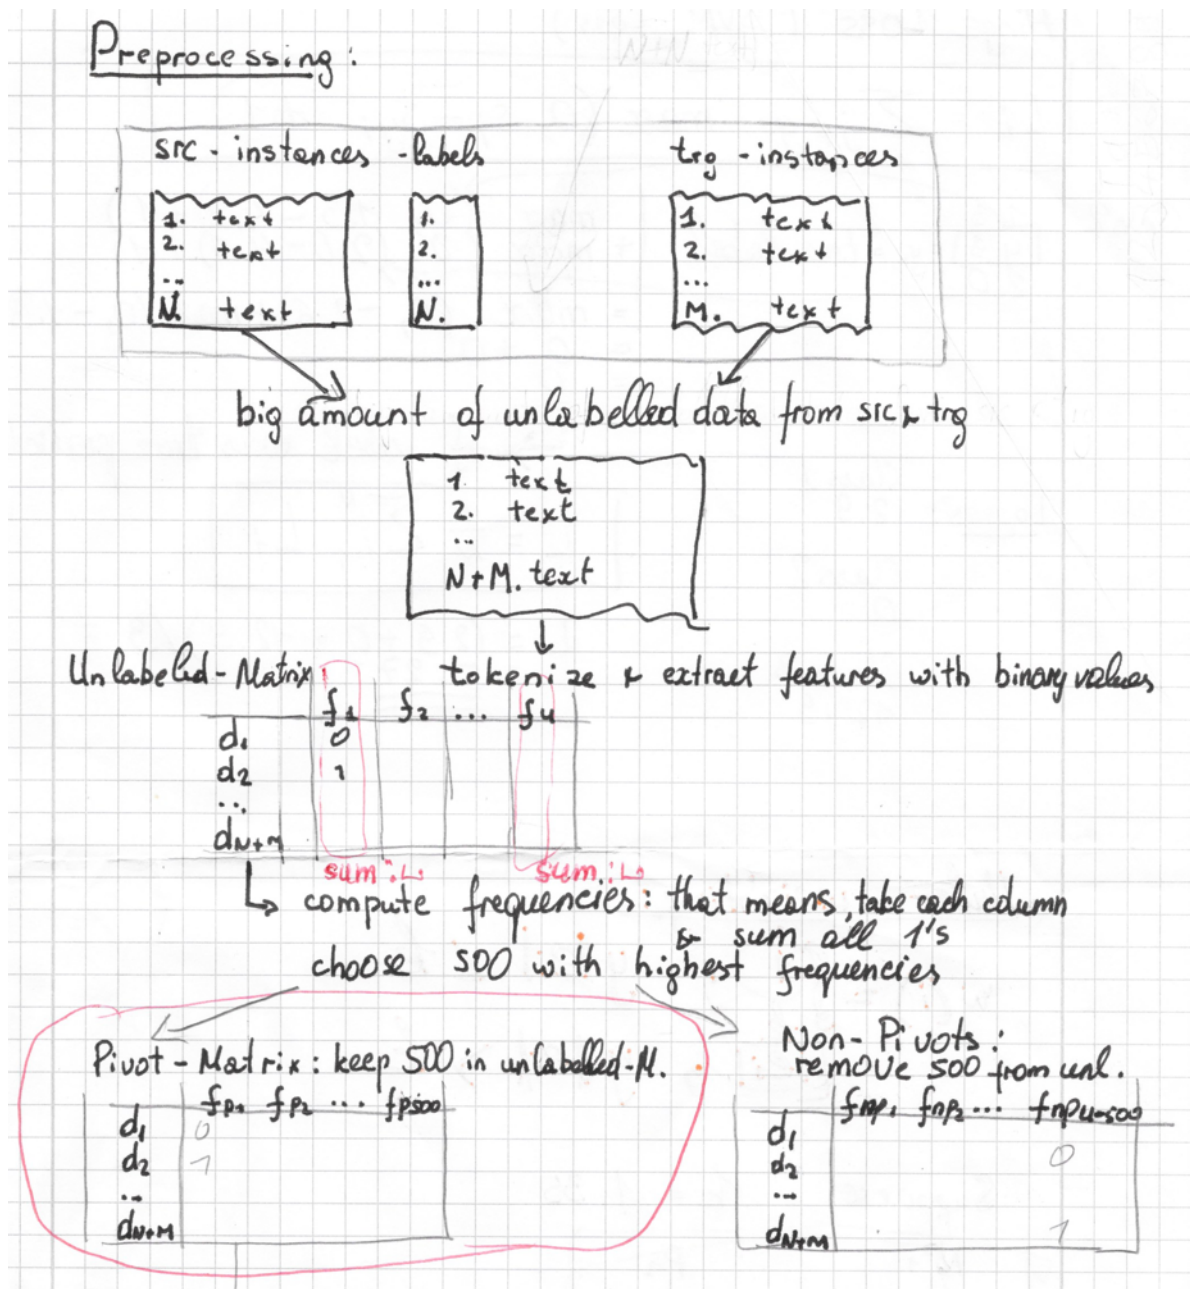 Preprocessing:
src - instances - labels trg - instances
1. text 1. 1. text
2. text 2. 2. text
... ... ...
N. text N. M. text
big amount of unlabelled data from src & trg
1. text
2. text
...
N+M. text
tokenize & extract features with binary values
Unlabeled - Matrix
f1 f2 ... fu
d1 0
d2 1
...
dN+M
sum: sum:
compute frequencies: that means, take each column
& sum all 1's
choose 500 with highest frequencies
Pivot - Matrix: keep 500 in unlabelled-M.
fp1 fp2 ... fp500
d1 0
d2 1
...
dN+M
Non-Pivots:
remove 500 from unl.
fnp1 fnp2 ... fnpu-500
d1
d2 0
...
dN+M 1